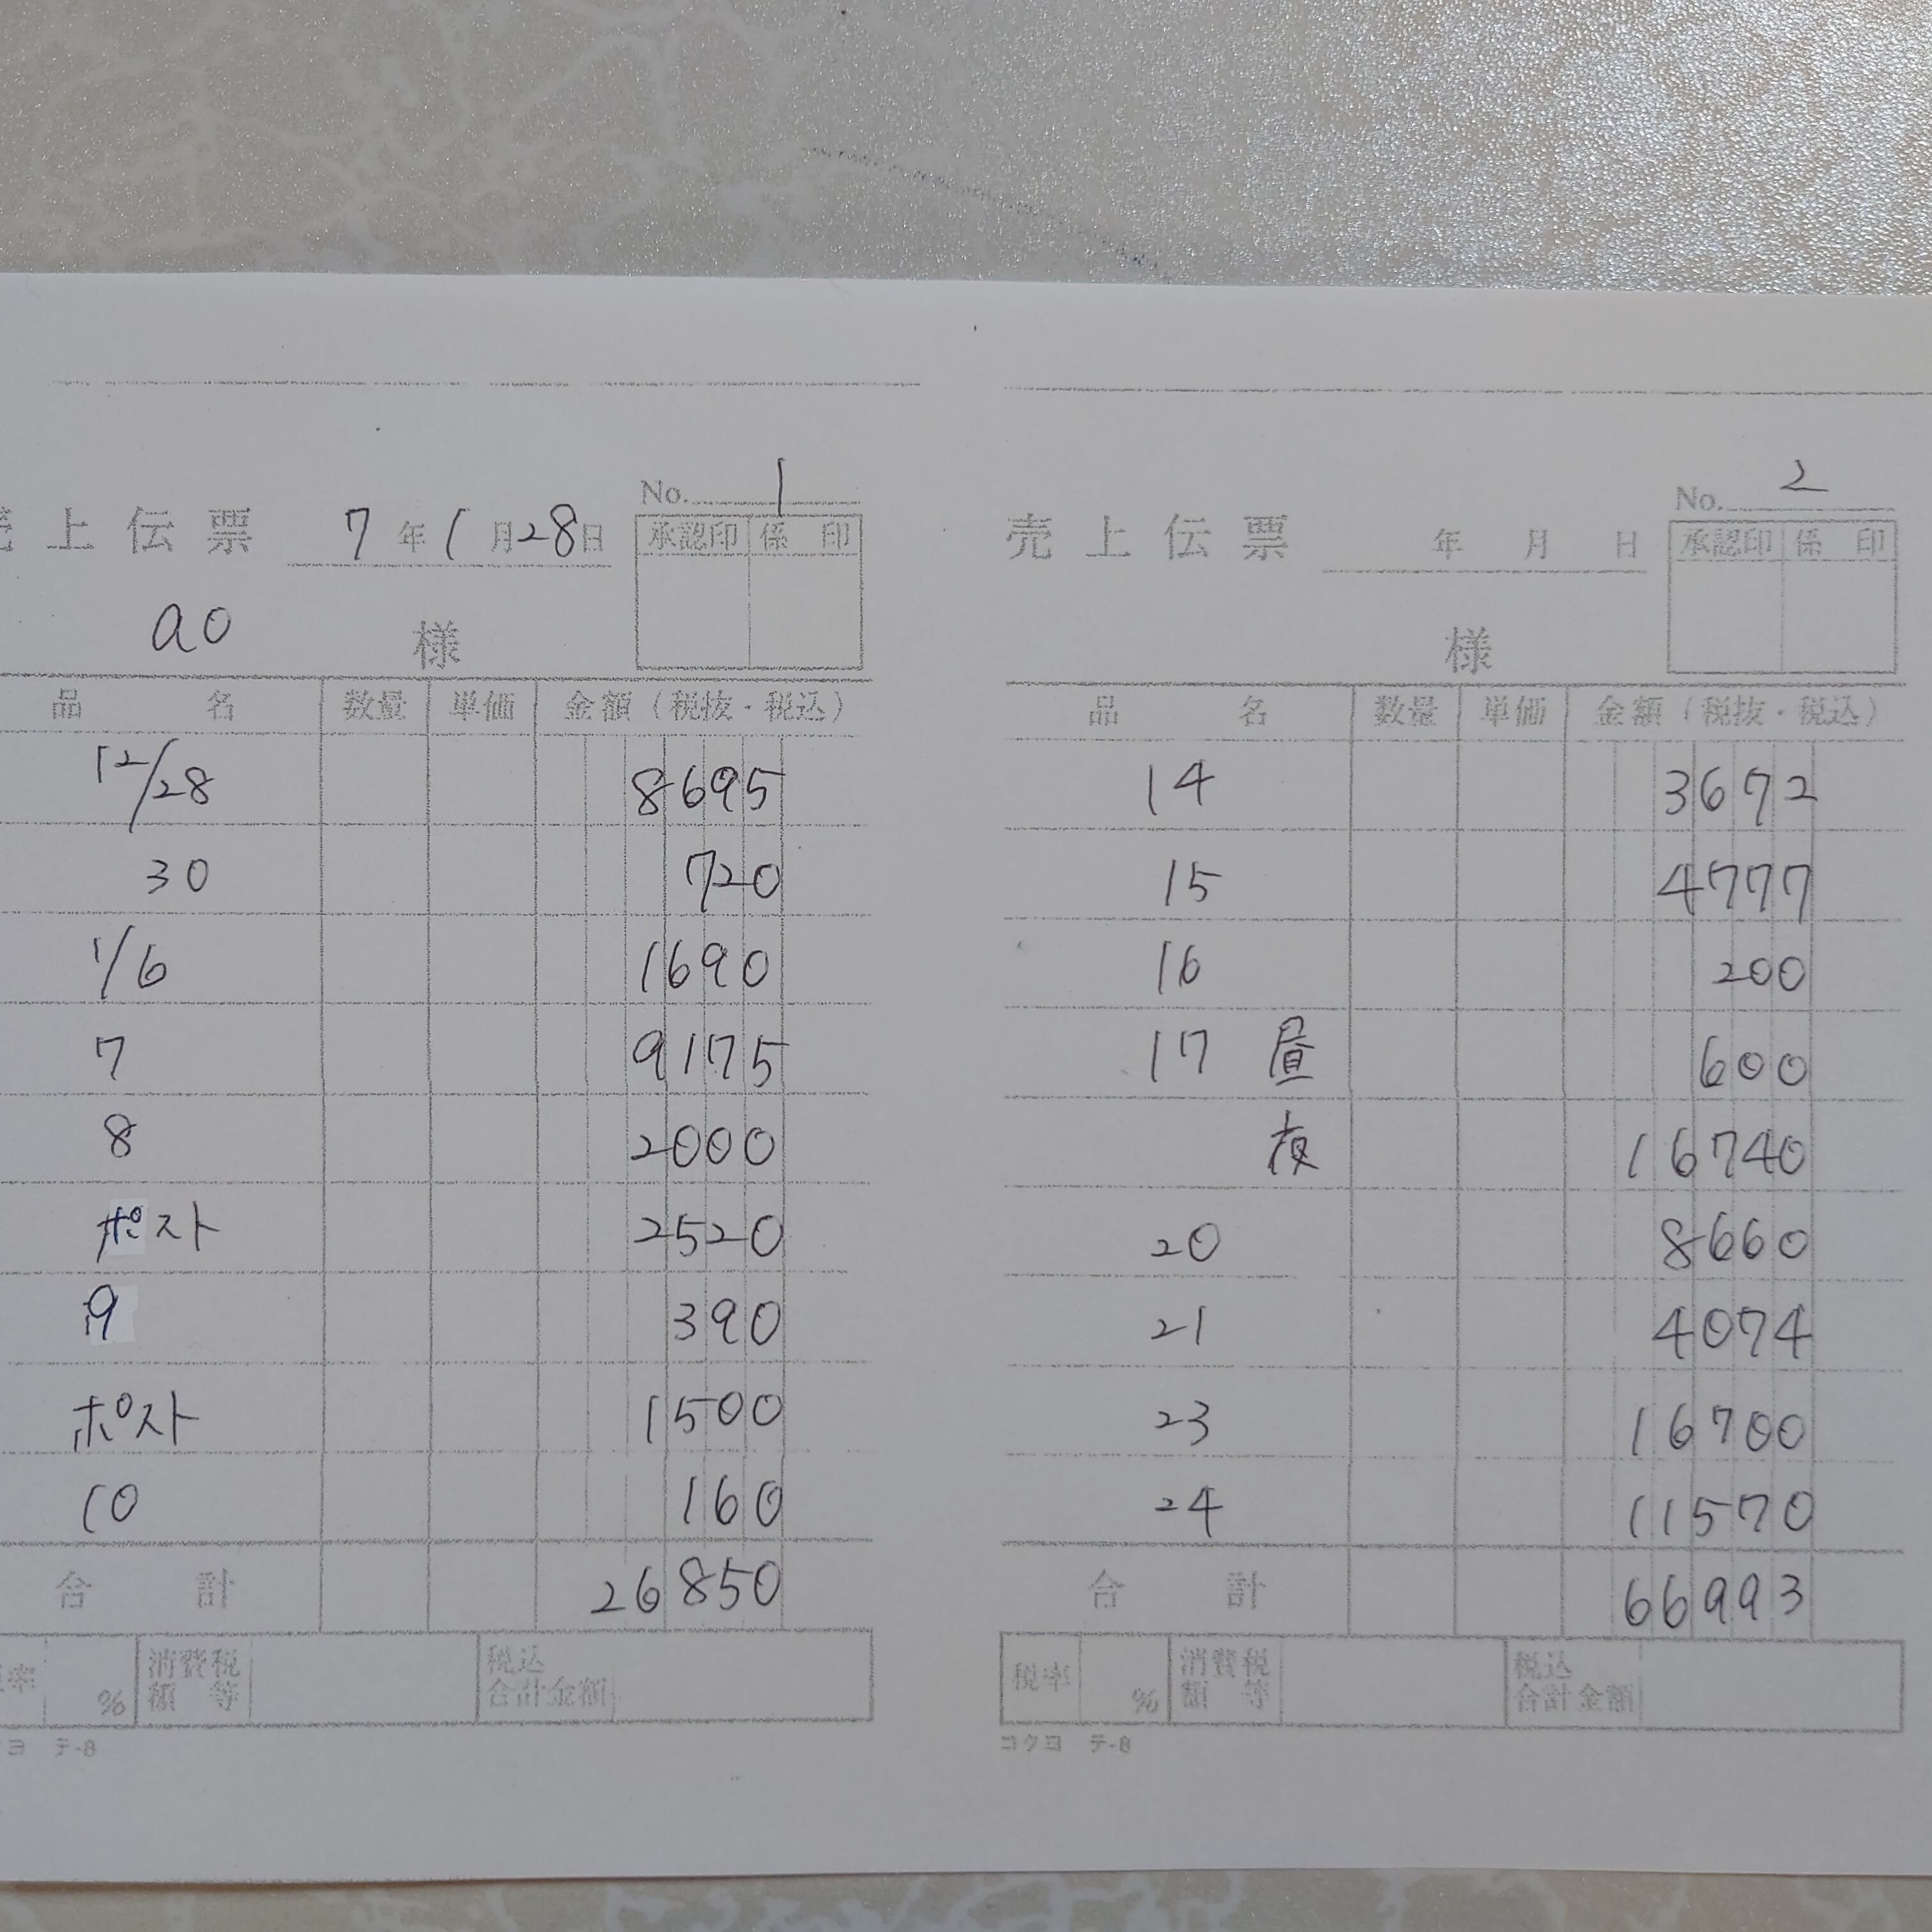 No. 1
売上伝票 7年1月28日
承認印 係印
ao 様
品名 数量 単価 金額(税抜・税込)
12/28 8695
30 720
1/6 1690
7 9175
8 2000
ポスト 2520
9 390
ポスト 1500
10 160
合計 26850
率 % 消費税額等 税込合計金額
ヨ テ-8
No. 2
売上伝票 年 月 日
承認印 係印
様
品名 数量 単価 金額(税抜・税込)
14 3672
15 4777
16 200
17 昼 600
夜 16740
20 8660
21 4074
23 16700
24 11570
合計 66993
税率 % 消費税額等 税込合計金額
コクヨ テ-8